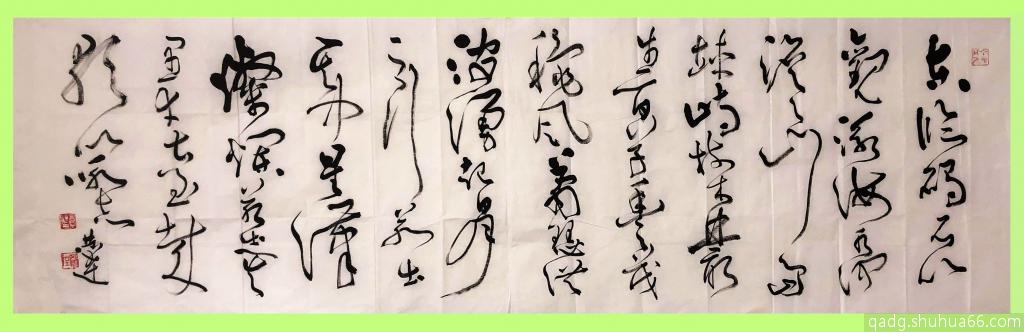 东临碣石以
觀滄海水何
澹澹山岛
竦峙树木丛
生百草丰茂
秋风萧瑟洪
波涌起日月
之行若出
其中星漢
燦爛若出其
里幸甚至哉
歌以咏志
qadg.shuhua66.com